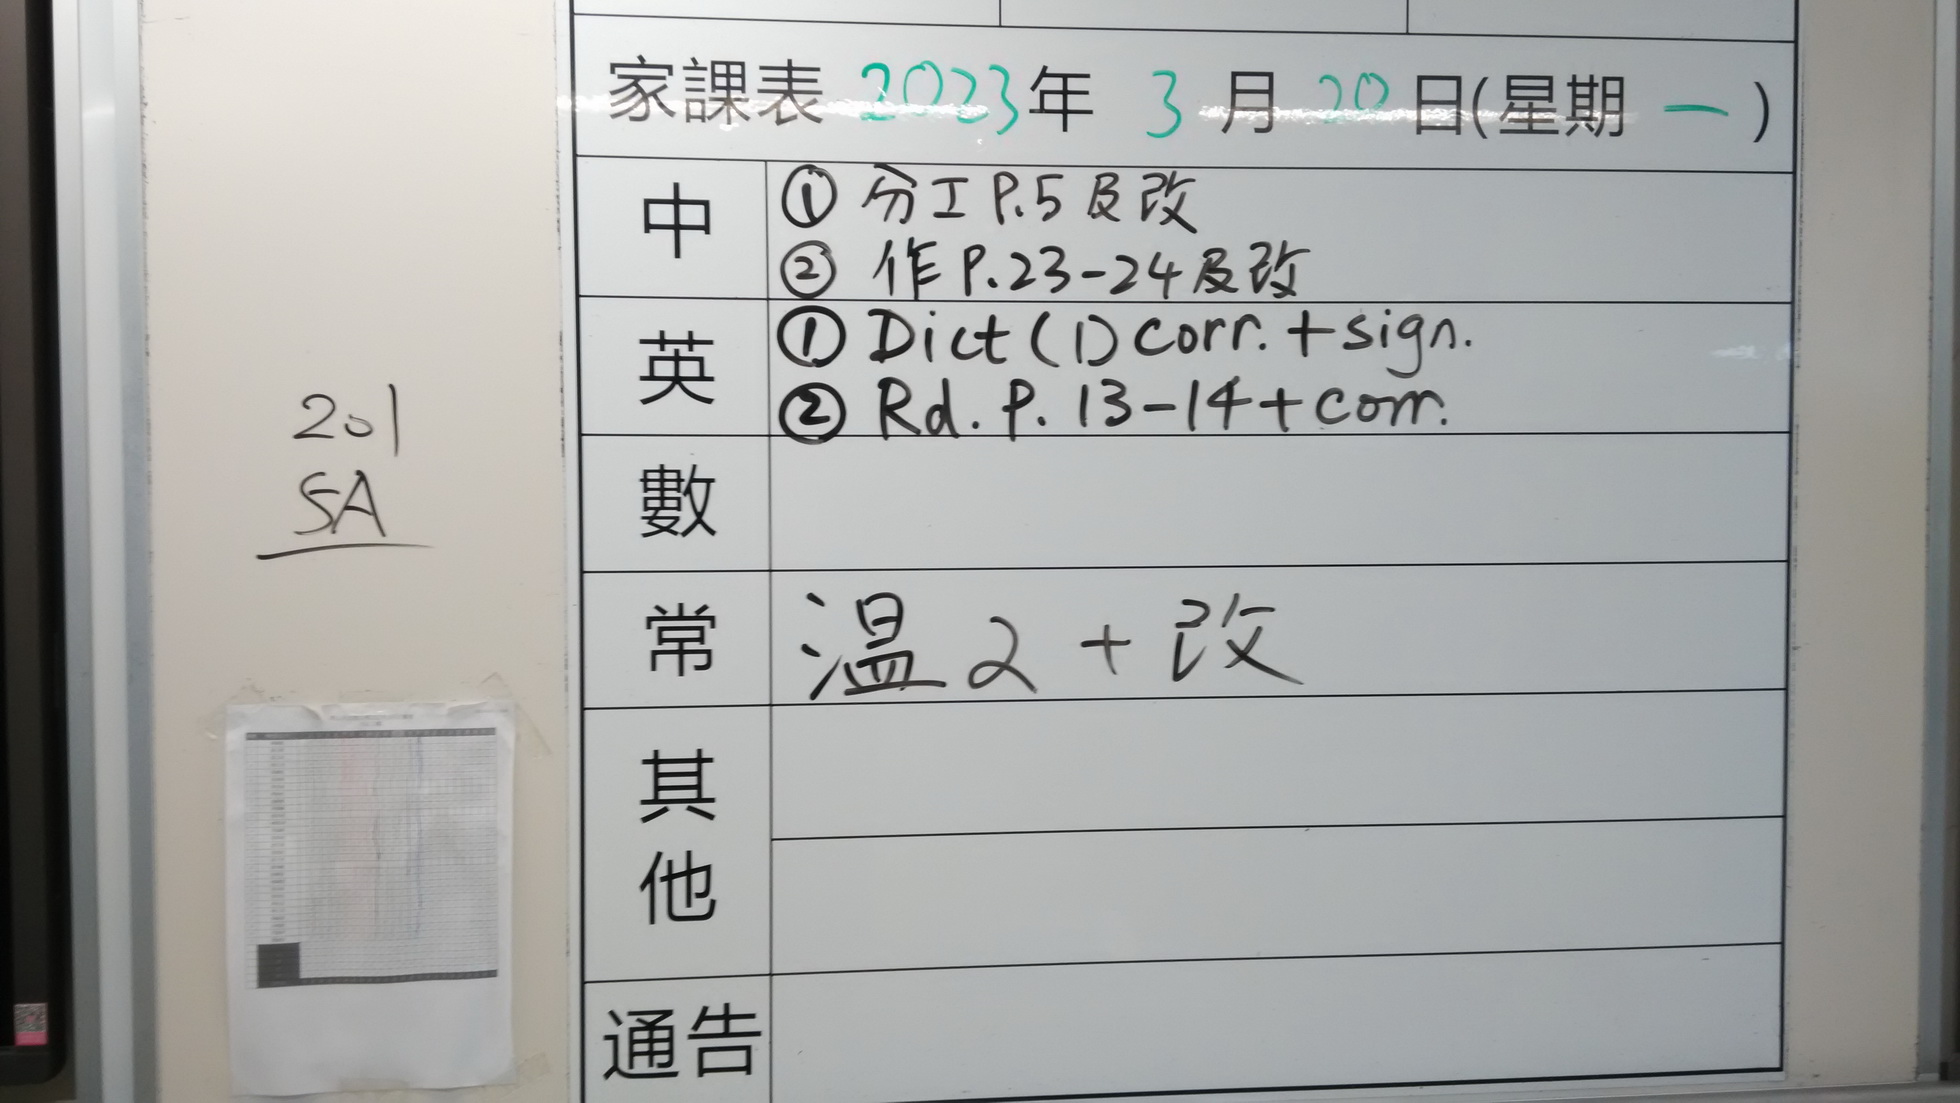 家課表 2023年 3月 20日(星期一)
中
① 分工 P.5 及改
② 作 P.23-24 及改
英
① Dict (1) corr. + sign.
② Rd. P. 13-14 + corr.
數
常
温2 + 改
其他
通告
201
5A